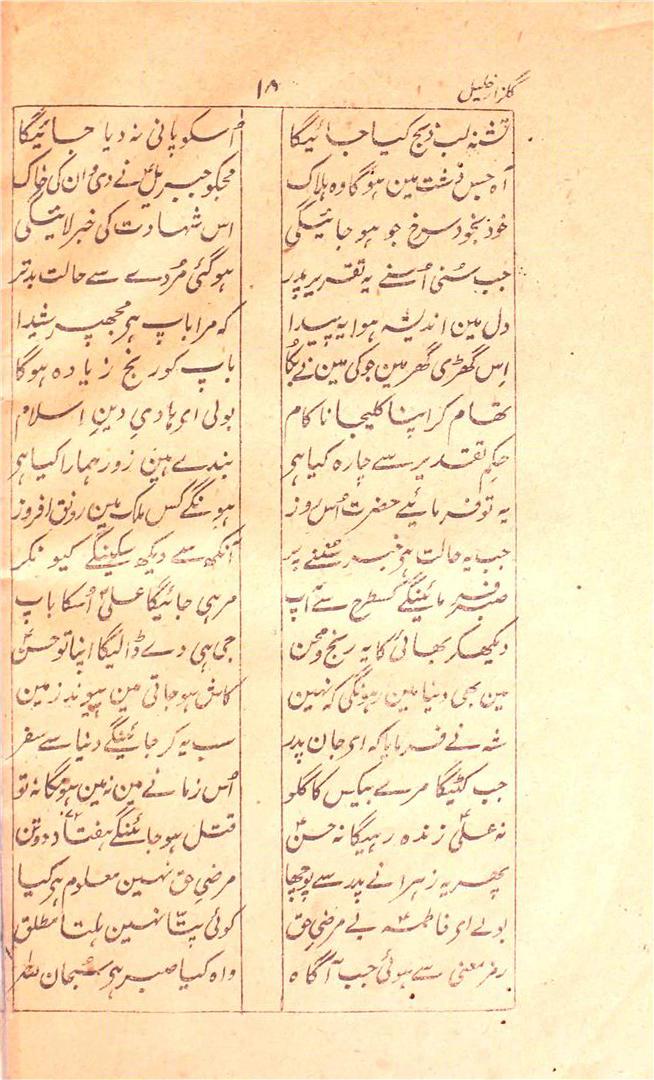 گلزار خلیل
۱۸
تشنہ لب ذبح کیا جائیگا اسکو پانی نہ دیا جائیگا
آہ جس دشت مین ہوگا وہ ہلاک مجکو جبریل نے دی وان کی خاک
خود بخود سرخ جو ہو جائیگی اس شہادت کی خبر لائیگی
جب سُنی اُسنے یہ تقریر پدر ہوگئی مُردے سے حالت بدتر
دل مین اندیشہ ہوا یہ پیدا کہ مرا باپ ہی مجھپر شیدا
اِس گھڑی گھر مین جو کی مین نے بُکا باپ کو رنج زیادہ ہوگا
تھام کر اپنا کلیجا ناکام بولی ای ہادیِ دینِ اِسلام
حکمِ تقدیر سے چارہ کیا ہی بندے ہین زور ہمارا کیا ہی
یہ تو فرمائیے حضرت اُس روز ہونگے کس ملک مین رونق افروز
جب یہ حالت ہی خبر سُننے پر آنکھ سے دیکھ سکینگے کیونکر
صبر فرمائینگے کسطرح سے آپ مر ہی جائیگا علیؑ اُسکا باپ
دیکھکر بھائی کا یہ رنج و محن جی ہی دے ڈالیگا اپنا تو حسنؑ
مین بھی دنیا مین رہونگی کہ نہین کاش ہو جاتی مین پیوند زمین
شہ نے فرمایا کہ ای جان پدر سب یہ کر جائینگے دنیا سے سفر
جب کٹیگا مرے بیکس کا گلو اُس زمانے مین نہ مین ہوگا نہ تو
نہ علیؑ زندہ رہیگا نہ حسنؑ قتل ہو جائینگے ہفتاد و دو تن
پھر یہ زہرا نے پدر سے پوچھا مرضیِ حق نہین معلوم ہی کیا
بولے ای فاطمہؑ بے مرضیِ حق کوئی پتّا نہین ہلتا مطلق
رمز معنی سے ہوئی جب آگاہ واہ کیا صبر ہی سبحان اللہ